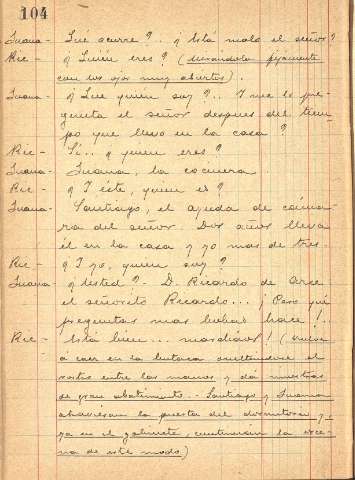 104
Juana - Qué ocurre?.. ¿Está malo el señor?
Ric - ¿Quién eres? (mirandola fijamente
con los ojos muy abiertos).
Juana - ¿Que quien soy?.. Y me lo pre-
gunta el señor despues del tiem-
po que llevo en la casa?
Ric - Si.. ¿quien eres?
Juana - Juana, la cocinera.
Ric - ¿Y éste, quien es?
Juana - Santiago, el ayuda de cáma-
ra del señor. Dos años lleva
él en la casa y yo mas de tres.
Ric - ¿Y yo, quien soy?
Juana - ¿Usted? - D. Ricardo de Arce
el señorito Ricardo... ¡Pero qué
preguntas mas bobas hace!..
Ric - Está bien... marchaos! (vuelve
á caer en la butaca ocultandose el
rostro entre las manos y dá muestras
de gran abatimiento. - Santiago y Juana
atraviesan la puerta del dormitorio y
ya en el gabinete, continúan la esce-
na de este modo)